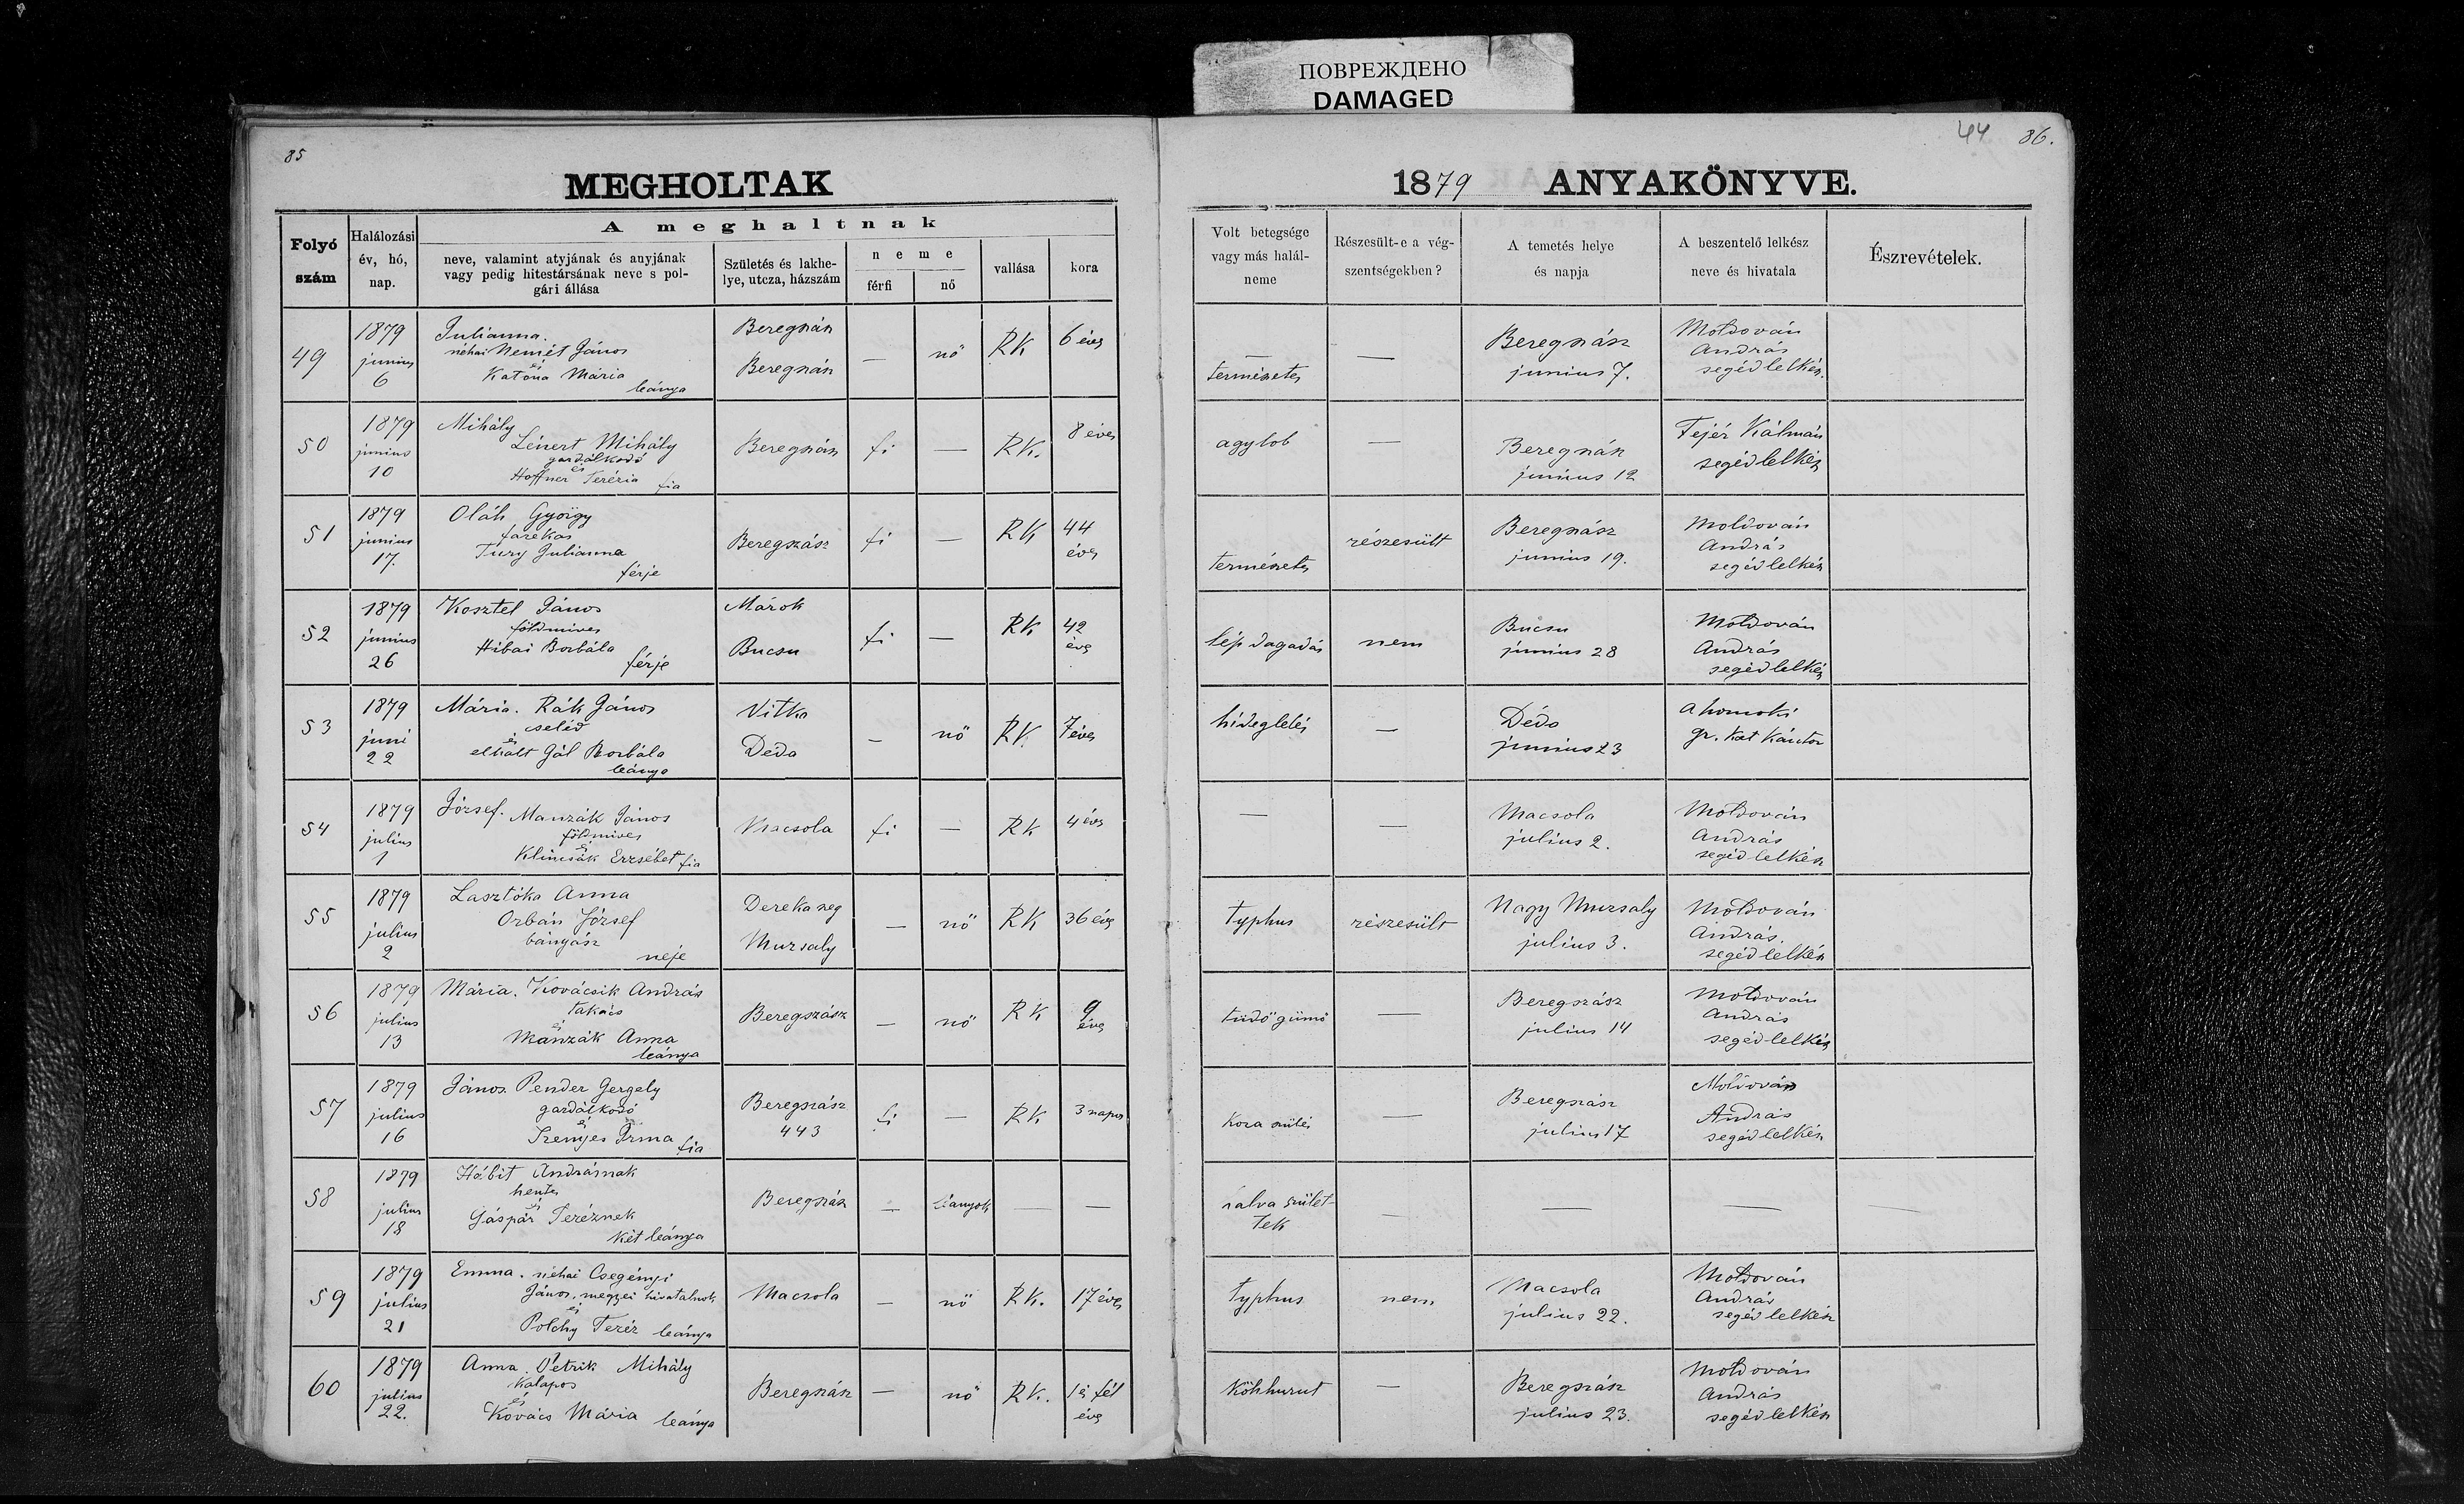 ПОВРЕЖДЕНО
DAMAGED
85
MEGHOLTAK
Folyó szám
Halálozási év, hó, nap.
A meghaltnak
neve, valamint atyjának és anyjának vagy pedig hitestársának neve s polgári állása
Születés és lakhelye, utcza, házszám
neme
férfi
nő
vallása
kora
49
1879
junius
6
Julianna.
néhai Nemét János
és
Katona Mária
leánya
Beregszász
Beregszász
—
nő
RK
6 éves
50
1879
junius
10
Mihály
Lénert Mihály
gazdálkodó
és
Hoffner Terézia
fia
Beregszász
fi
—
RK.
8 éves
51
1879
junius
17.
Oláh György
fazekas
Tury Julianna
férje
Beregszász
fi
—
RK
44
éves
52
1879
junius
26
Kosztel János
földmives
Hibai Borbála
férje
Márok
Bucsu
fi
—
RK
42
éves
53
1879
juni
22
Mária. Rák János
cseléd
és
elhalt Gál Borbála
leánya
Vitka
Deda
—
nő
RK.
7 éves
54
1879
julius
1
József. Manzák János
földmives
és
Klincsák Erzsébet fia
Macsola
fi
—
RK
4 éves
55
1879
julius
2
Lasztóka Anna
Orbán József
bányász
neje
Derekaszeg
Muzsaly
—
nő
RK
36 éves
56
1879
julius
13
Mária. Kovácsik András
takács
és
Manzák Anna
leánya
Beregszász
—
nő
RK
9
éves
57
1879
julius
16
János. Pender Gergely
gazdálkodó
és
Szenyes Irma
fia
Beregszász
443
fi
—
RK.
3 napos
58
1879
julius
18
Hábit Andrásnak
hentes
és
Gáspár Teréznek
két leánya
Beregszász
—
leányok
—
—
59
1879
julius
21
Emma. néhai Csegényi
János. megyei hivatalnok
és
Polchy Teréz leánya
Macsola
—
nő
RK.
17 éves
60
1879
julius
22.
Anna. Petrik Mihály
kalapos
és
Kovács Mária leánya
Beregszász
—
nő
RK.
1 és fél
éves
44
86.
1879 ANYAKÖNYVE.
Volt betegsége vagy más halálneme
Részesült-e a végszentségekben?
A temetés helye és napja
A beszentelő lelkész neve és hivatala
Észrevételek.
—
természetes
—
Beregszász
junius 7.
Moldován
András
segédlelkész.
agylob
—
Beregszász
junius 12
Fejér Kálmán
segédlelkész
természetes
részesült
Beregszász
junius 19.
Moldován
András
segédlelkész
lép dagadás
nem
Bucsu
junius 28
Moldován
András
segédlelkész
hideglelés
—
Déda
junius 23
A homoki
gr. kat kántor
—
—
Macsola
julius 2.
Moldován
András
segédlelkész
typhus
részesült
Nagy Muzsaly
julius 3.
Moldován
András.
segédlelkész
tüdőgümő
—
Beregszász
julius 14
Moldován
András
segédlelkész
Kora szülés
—
Beregszász
julius 17
Moldován
András
segédlelkész
halva születtek
—
—
—
—
typhus
nem
Macsola
julius 22.
Moldován
András
segédlelkész
Köhhurut
—
Beregszász
julius 23.
Moldován
András
segédlelkész